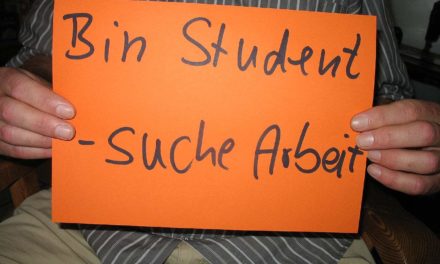 Bin Student
-suche Arbeit